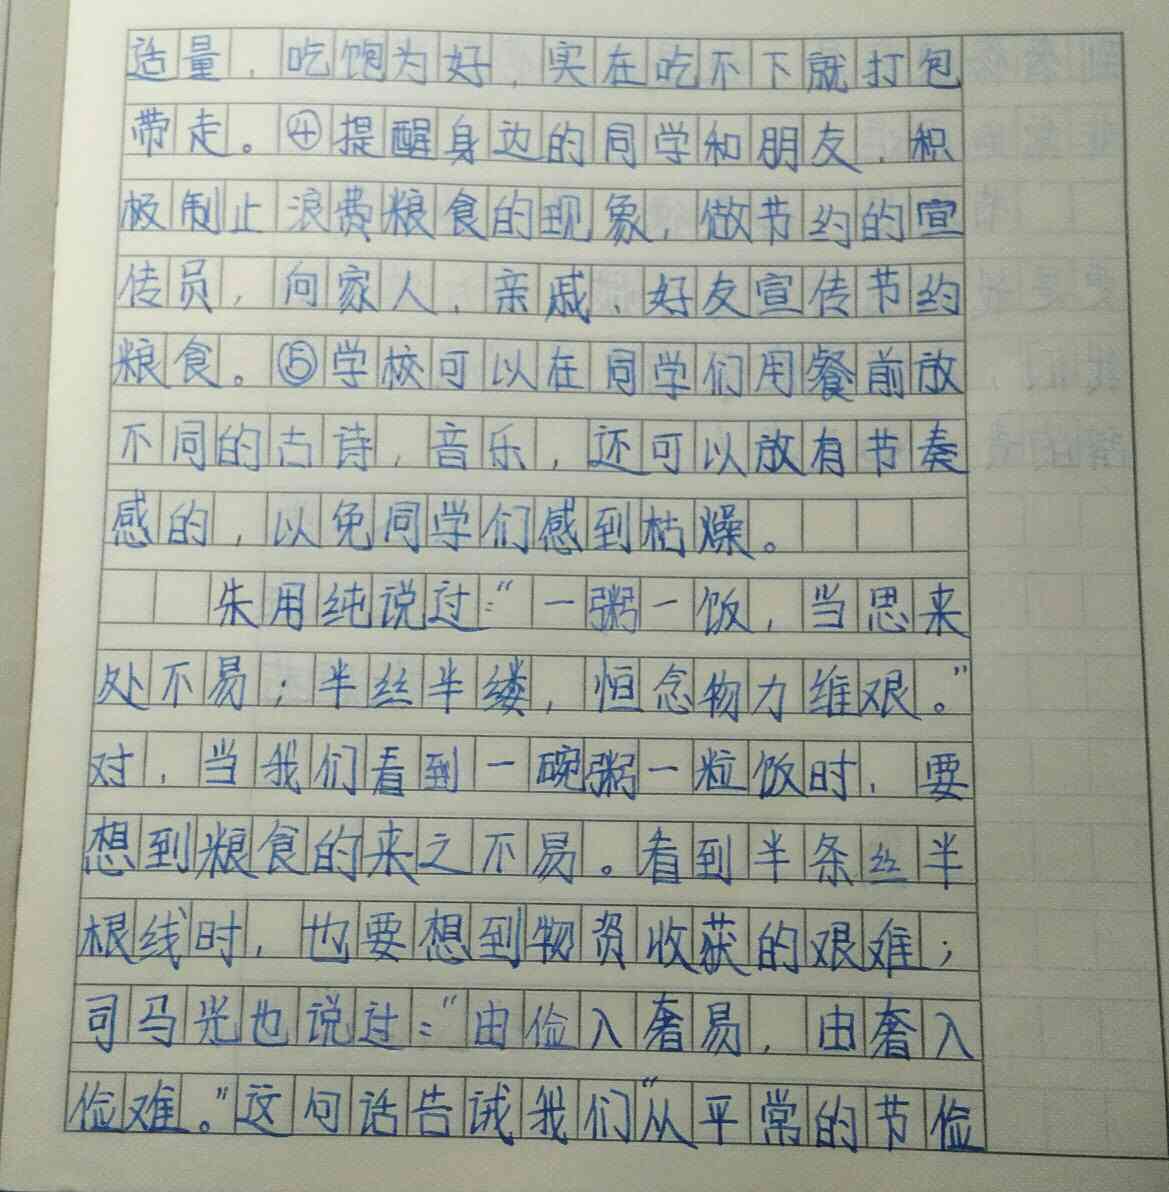 适量，吃饱为好，实在吃不下就打包
带走。④提醒身边的同学和朋友，积
极制止浪费粮食的现象，做节约的宣
传员，向家人、亲戚、好友宣传节约
粮食。⑤学校可以在同学们用餐前放
不同的古诗，音乐，还可以放有节奏
感的，以免同学们感到枯燥。
朱用纯说过：“一粥一饭，当思来
处不易；半丝半缕，恒念物力维艰。”
对，当我们看到一碗粥一粒饭时，要
想到粮食的来之不易。看到半条丝半
根线时，也要想到物资收获的艰难；
司马光也说过：“由俭入奢易，由奢入
俭难。”这句话告诫我们“从平常的节俭